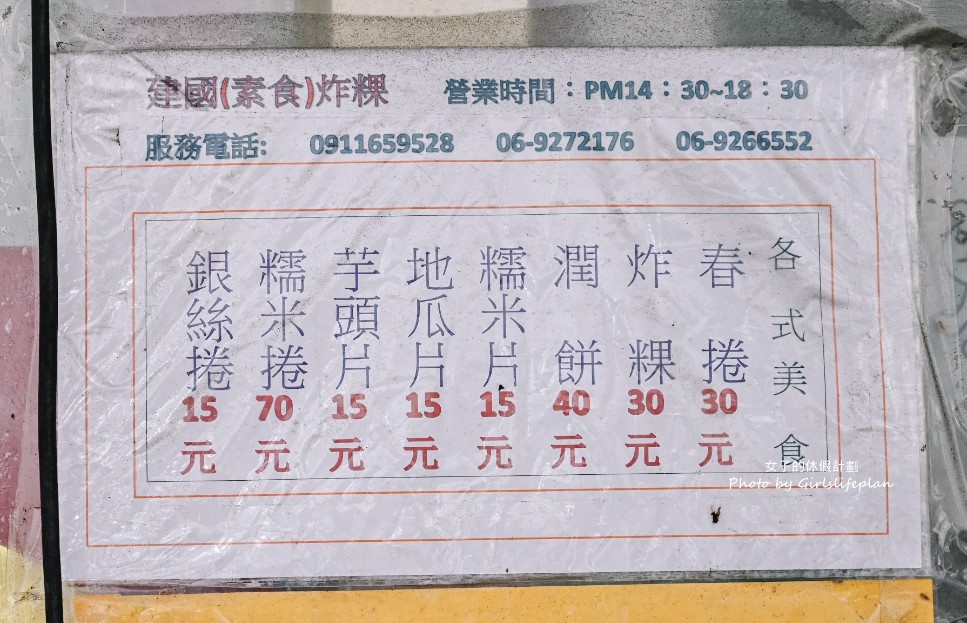 建國(素食)炸粿 營業時間：PM14：30~18：30
服務電話: 0911659528 06-9272176 06-9266552
各式美食
春捲30元
炸粿30元
潤餅40元
糯米片15元
地瓜片15元
芋頭片15元
糯米捲70元
銀絲捲15元
女子的休假計劃
Photo by Girlslifeplan